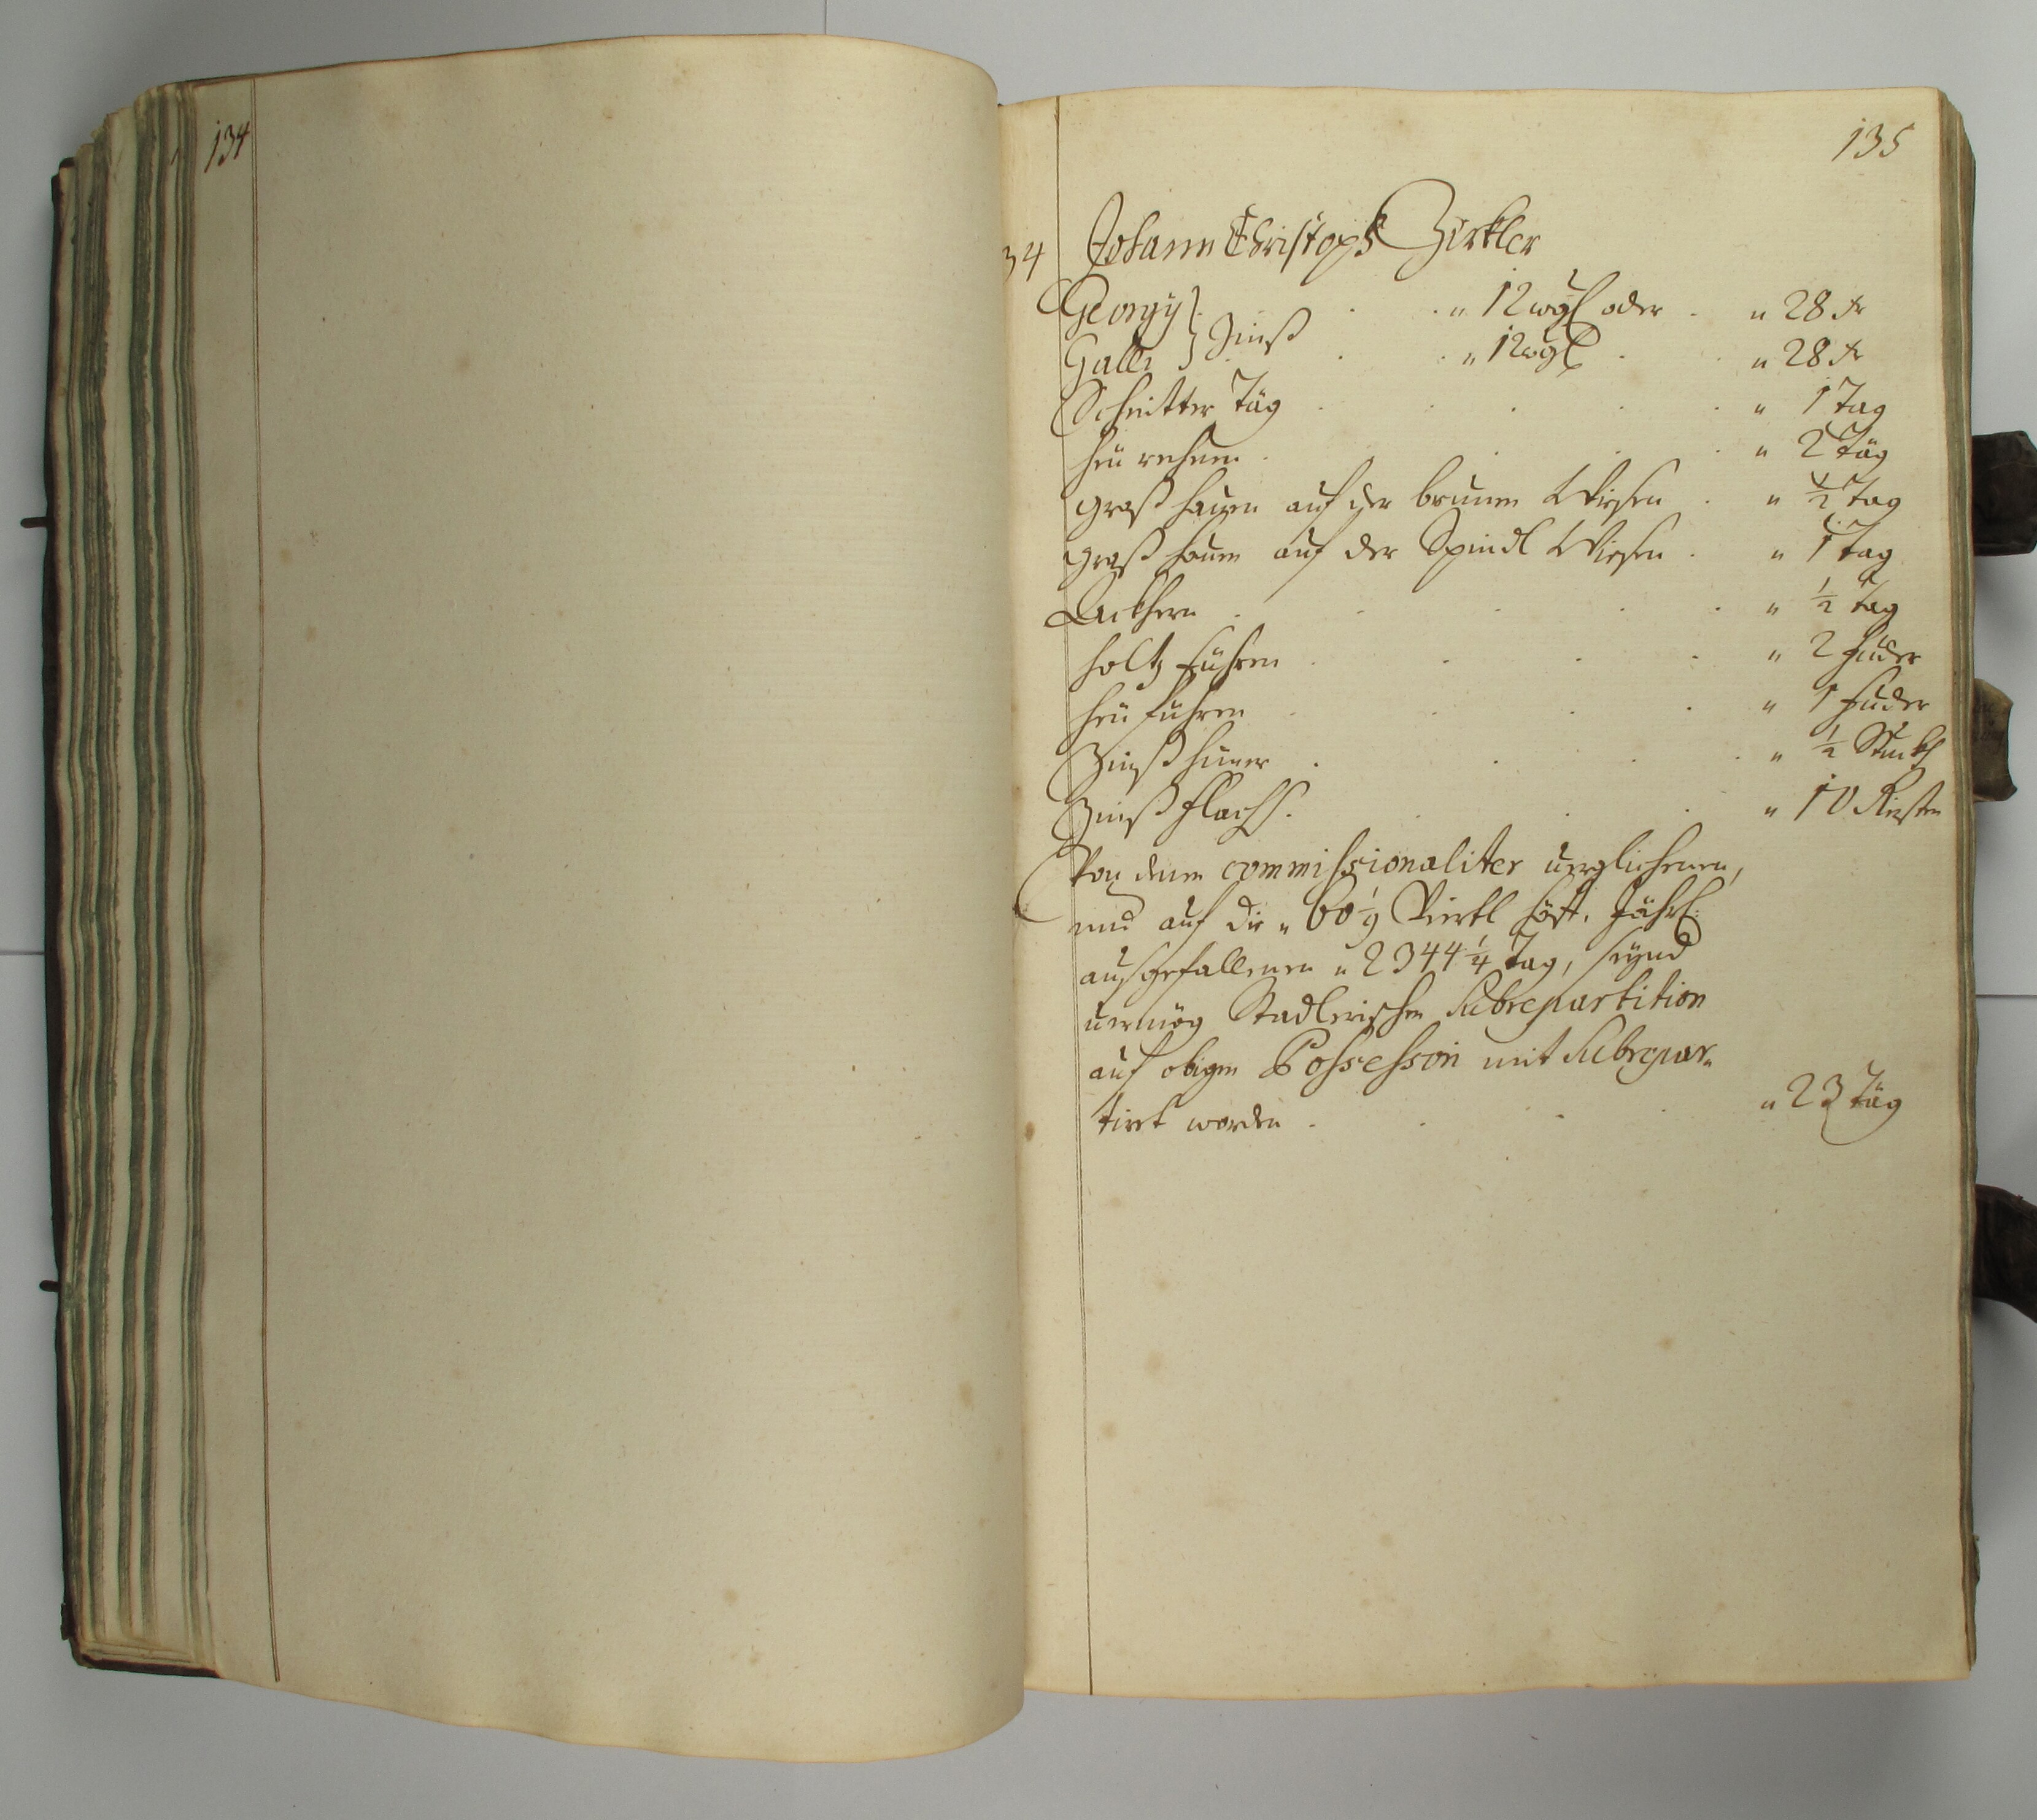 134
135
34 Johann Christoph Zirkler
Georgÿ } Zinß . . „ 12 wgl oder . „ 28 xr
Galli } . . „ 12 wgl . „ 28 xr
Schnitter Täg . . . . „ 1 Tag
heü rechnen . . . . „ 2 Täg
graß hauen auf der brunn Wiesen . „ ½ Tag
graß hauen auf der Spindl Wiesen . „ 1 Tag
Ackhern . . . . . „ ½ Tag
holtz führen . . . . „ 2 Fuder
heü führen . . . . „ 1 Fuder
Zinß hüner . . . . „ ½ Stuckh
Zinß Flachß . . . . „ 10 Riesten
Von denen commissionaliter verglichenen,
und auf die „ 60 1/9 Viertl höff. Jährl:
ausgefallenen „ 2344 ¼ Tag, seÿnd
vermög Stadlerischen Subrepartition
auf obigen Possesson mit Subrepar„
tirt worden . . . . „ 23 Täg